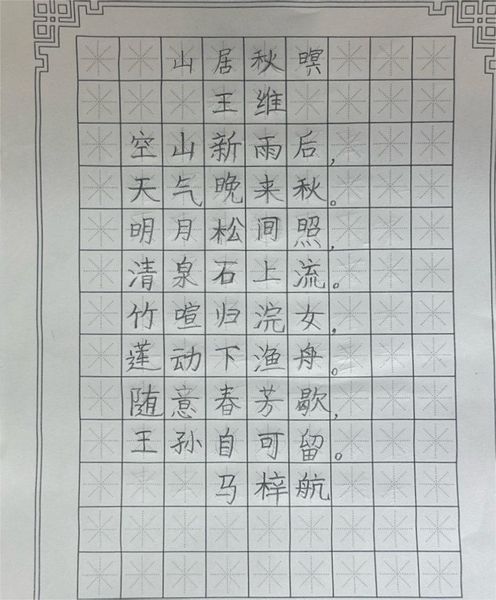 山居秋暝
王维
空山新雨后，
天气晚来秋。
明月松间照，
清泉石上流。
竹喧归浣女，
莲动下渔舟。
随意春芳歇，
王孙自可留。
马梓航